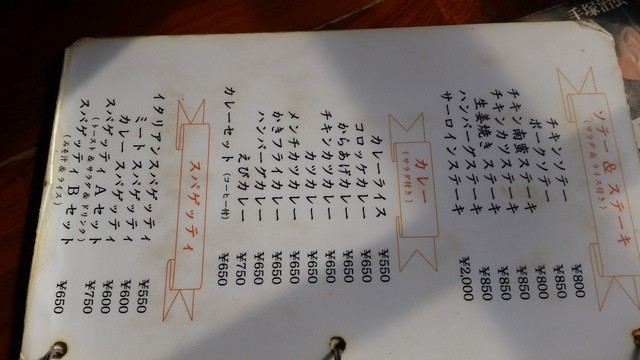 ソテー＆ステーキ
(サラダ＆ライス付き)
チキンソテー ¥800
ポークソテー ¥850
チキン南蛮ステーキ ¥800
チキンカツステーキ ¥850
生姜焼きステーキ ¥850
ハンバーグステーキ ¥850
サーロインステーキ ¥2,000
カレー
(サラダ付き)
カレーライス ¥550
コロッケカレー ¥650
からあげカレー ¥650
チキンカツカレー ¥650
カツカレー ¥650
メンチカツカレー ¥650
かきフライカレー ¥650
ハンバーグカレー ¥650
えびカレー ¥750
カレーセット(コーヒー付) ¥650
スパゲッティ
イタリアンスパゲッティ ¥550
ミートスパゲッティ ¥600
カレースパゲッティ ¥600
スパゲッティAセット ¥750
(トースト＆サラダ＆ドリンク)
スパゲッティBセット ¥650
(みそ汁＆ライス)